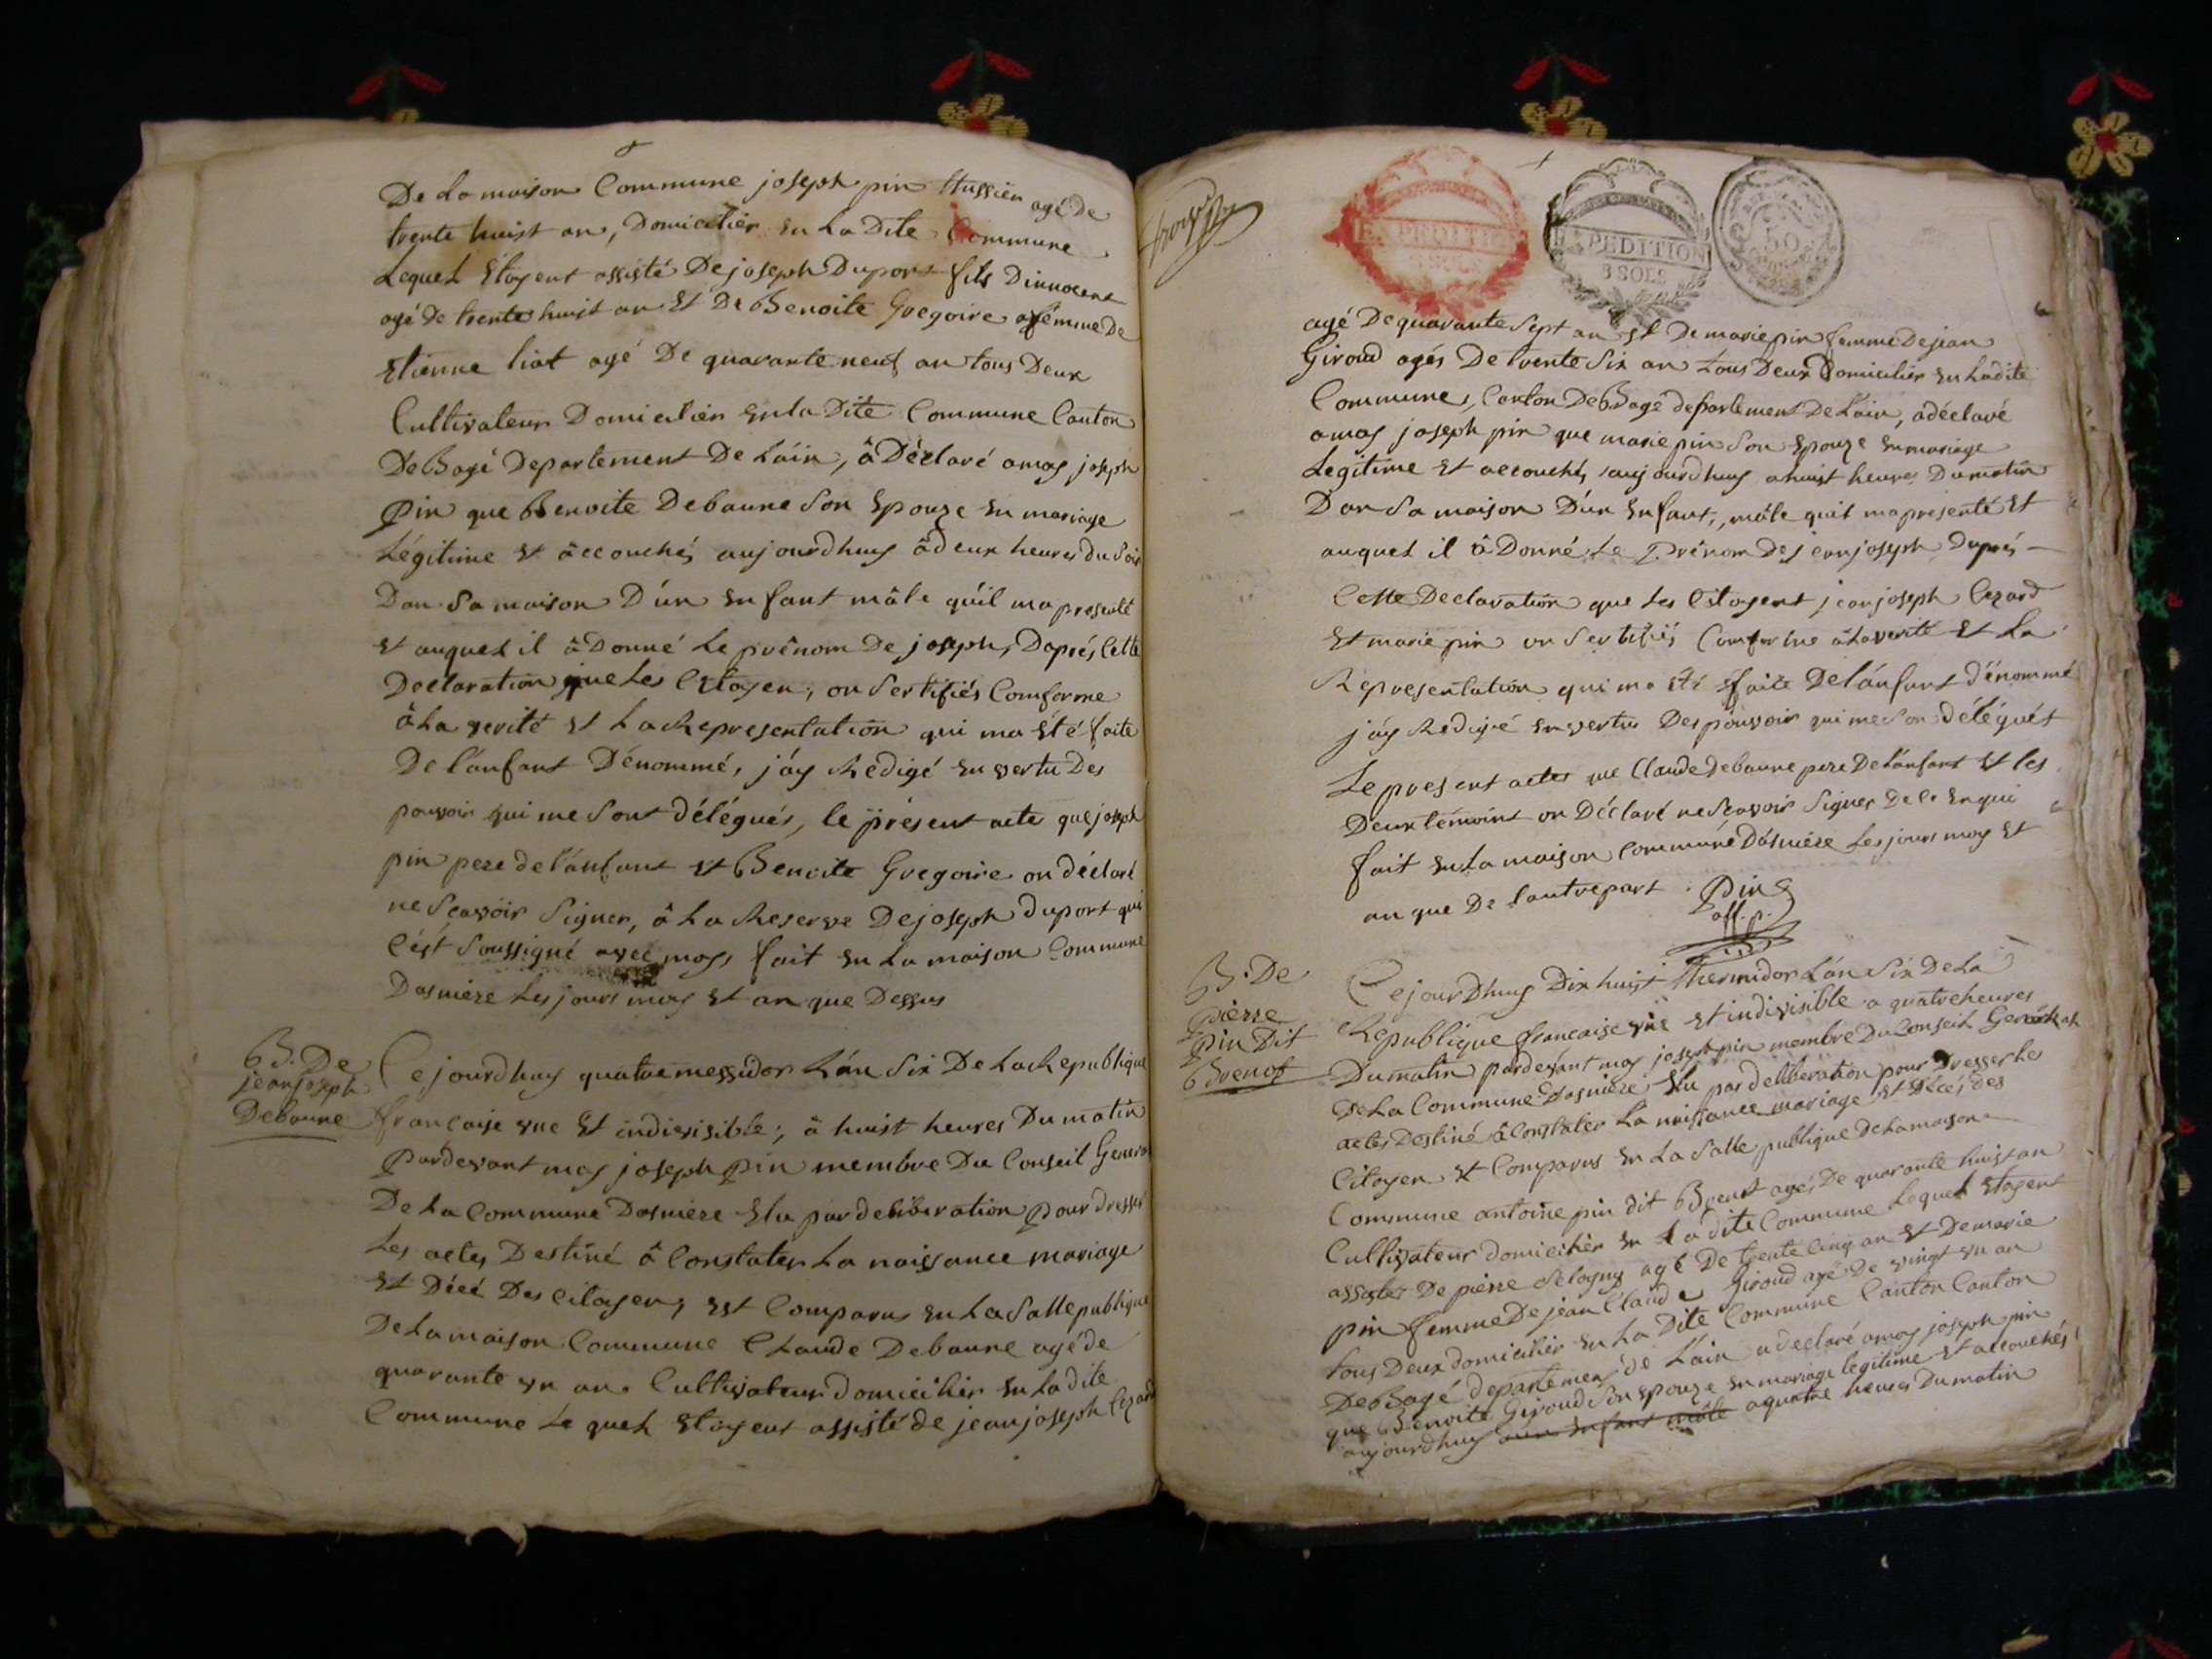 De La maison Commune joseph pin Hussier agé de
trente huist an, Domicilier en La Dite Commune
Lequel Etoyent assisté De joseph Duport fils Dinnocent
agé de trente huist an Et De Benoite Gregoire femme De
Etienne liat agé De quarante neuf an tous Deux
Cultivateur Domicilier en la Dite Commune Canton
De Bagé Departement De Láin, â Déclaré a moy joseph
Pin que Benoite Debaune Son Epouze en mariage
Légitime Et âccouchés aujourdhuy â deux heures du Soir
Dan Sa maison D'ún enfant mâle qúil ma presenté
Et auquel il â Donné Le prênom De joseph, Daprés Cette
Declaration que Les Citoyen, on Sertifiés Comforme
â La verité Et La Representation qui ma Eté faite
De l'ánfant Dénommé, j'áy Redigé en vertu Des
pouvoir qui me Sont délégués, le présent acte que joseph
pin pere de l'ánfant Et Benoite Gregoire on déclaré
ne Scavoir Signer, â La Reserve De joseph duport qui
C'ést Soussigné avec moy, fait en La maison Commune
Dasniere Les jours moy Et an que Dessus
B. De
jean joseph
Debaune
Ce jourdhuy quatre messidor L'án Six De La Republique
francaise vne Et indivisible, â huist heures Du matin
Pardevant moy joseph Pin membre Du Conseil General
De La Commune Dasniere Elu par deliberation Pour dresser
Les actes Destiné â Constater La naissance mariage
Et Décé Des Citoyen, Est Comparus en La Salle publique
De La maison Commune Claude Debaune agé de
quarante vn an Cultivateur domicilier en La dite
Commune Le quel Etoyent assisté de jean joseph Cezard
EXPEDITION
EXPEDITION
3 SOLS
50
agé De quarante Sept an Et De marie pin femme De jean
Giroud agés De trente Six an tous Deux Domicilier en Ladite
Commune, Canton De Bagé departement De Lain, a déclaré
a moy joseph pin que marie pin Son Epouze en mariage
Legitime Et accouchés aujourdhuy a huist heures Du matin
Dan Sa maison D'ún Enfant, mâle quil ma presenté Et
auquel il â Donné Le Prênom De jean joseph daprés
Cette Declaration que Les Citoyent jean joseph Cezard
Et marie pin on Sertifiés Comforme â La verité Et La
Representation qui ma Eté faite De l'ánfant dénommé
j'áy Redigé en vertu Des pouvoir qui me Son délégués
Le present actes que Claude debaune pere De l'ánfant Et les
Deux témoint on Déclaré ne Scavoir Signer De Ce enqui
fait en La maison Commune Dasniere Les jours moy Et
an que De l'autre part Pin
off. p.
B. De
Pierre
Pin Dit
Brenot
Ce jourDhuy Dix huist Thermidor L'án Six De La
Republique francaise vne Et indivisible a quatre heures
Du matin pardevant moy joseph pin membre Du Conseil General
De La Commune Dasniere Elu par deliberation pour Dresser Les
actes Destiné â Constater La naissance mariage Et Décés des
Citoyen Et Comparus En La Salle publique De La maison
Commune antoine pin dit Brenot agés De quarante huist an
Cultivateur domicilier en La dite Commune Lequel Etoyent
assistés De pierre Seloyny agé De trente Cinq an Et De marie
pin femme De jean Claude Giroud agé De vingt vn an
tous Deux domicilier en La Dite Commune Canton Canton
De Bagé departement de Láin a declaré a moy joseph pin
que Benoite Giroud Son Epouze en mariage legitime Et accouchés
aujourdhuy dun enfant mâle a quatre heures Du matin